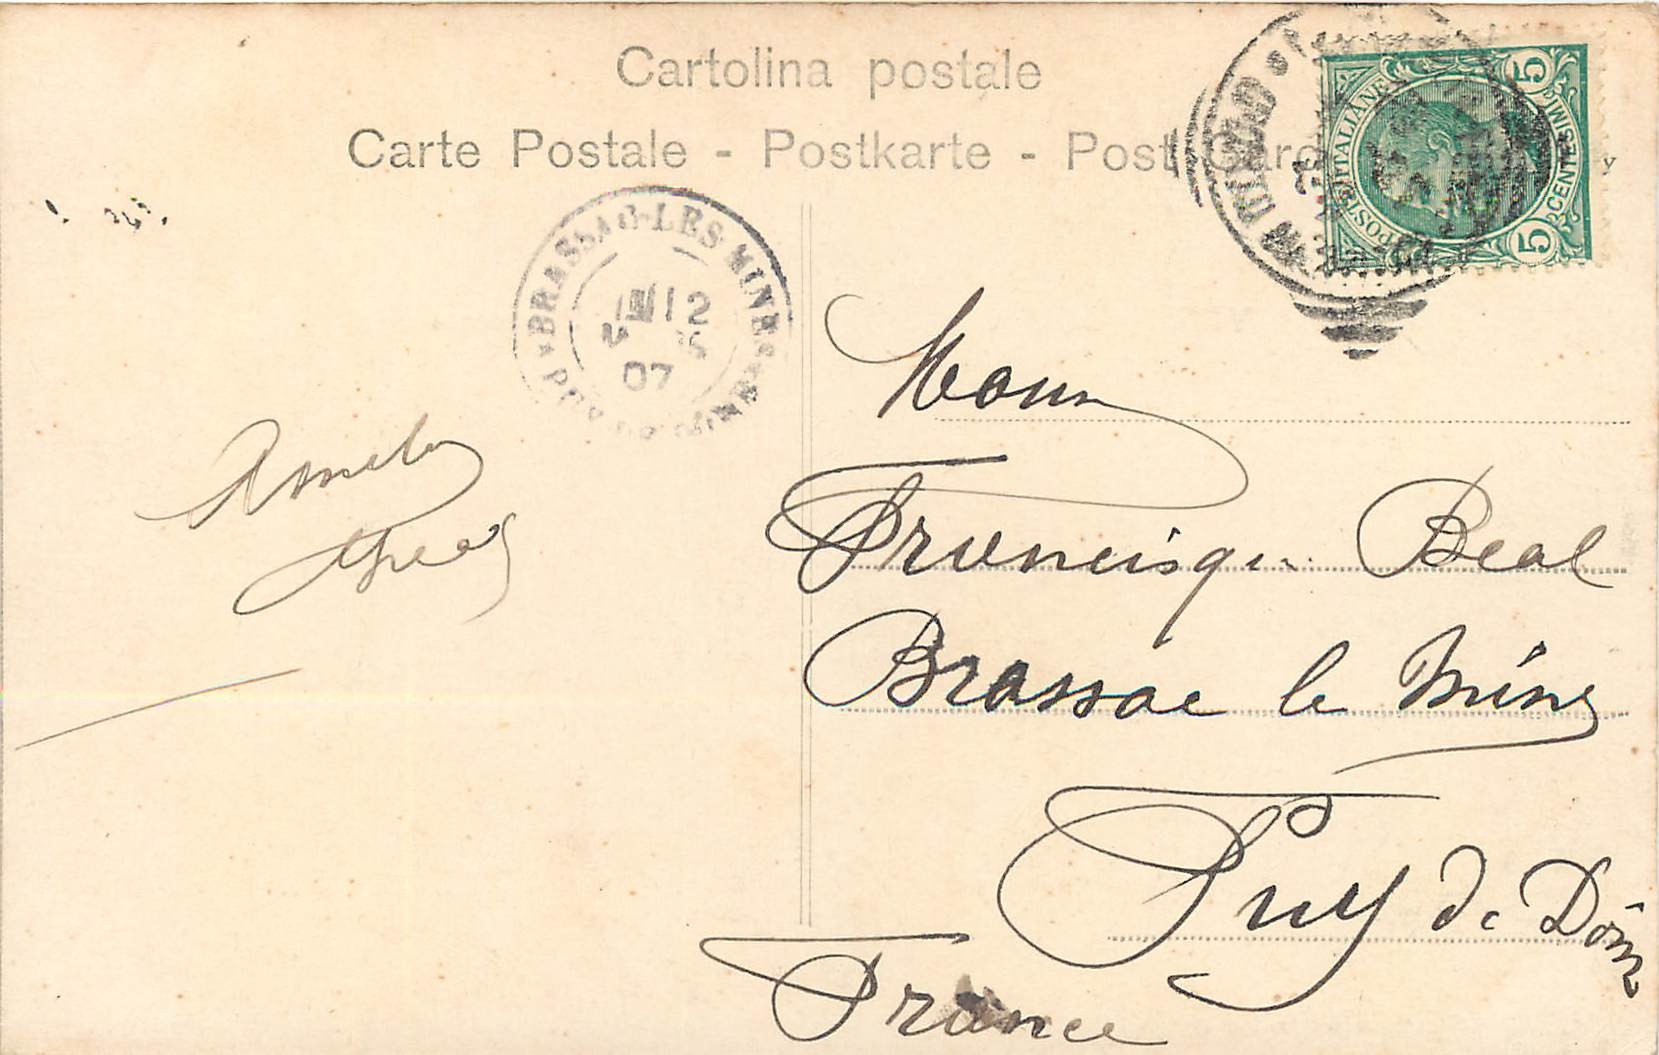 Cartolina postale
Carte Postale - Postkarte - Post
POSTE ITALIANE
CENTESIMI
5
5
BRASSAC-LES-MINES
PUY-DE-DÔME
12
5
07
Francisque Béal
Brassac le Mines
Puy de Dôme
France